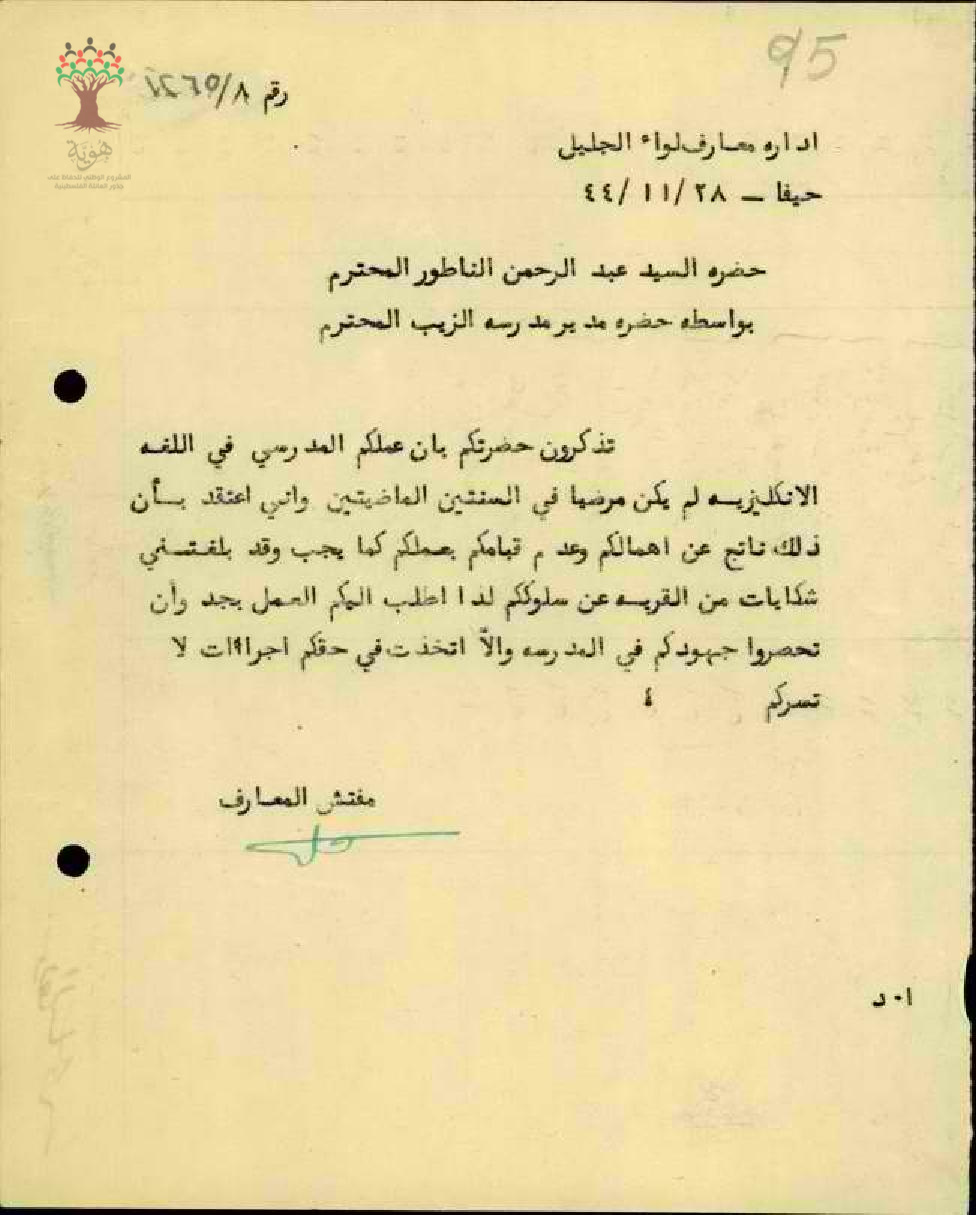 95
رقم ٨/
هوية
المشروع الوطني للحفاظ على
جذور العائلة الفلسطينية
اداره معارف لواء الجليل
حيفا – ٢٨ /١١ /٤٤
حضره السيد عبد الرحمن الناطور المحترم
بواسطه حضره مدير مدرسه الزيب المحترم
تذكرون حضرتكم بان عملكم المدرسي في اللغه
الانكليزيه لم يكن مرضيا في السنتين الماضيتين واني اعتقد بأن
ذلك ناتج عن اهمالكم وعدم قيامكم بعملكم كما يجب وقد بلغتني
شكايات من القريه عن سلوككم لذا اطلب اليكم العمل بجد وأن
تحصروا جهودكم في المدرسه والاّ اتخذت في حقكم اجراءات لا
تسركم ٤
مفتش المعارف
ا٠د